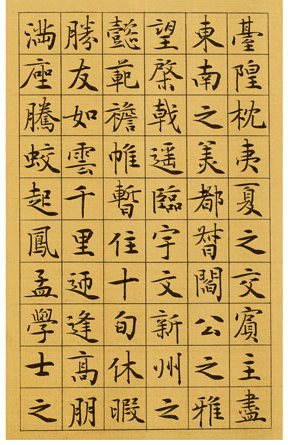 臺隍枕夷夏之交賓主盡
東南之美都督閻公之雅
望棨戟遥臨宇文新州之
懿範襜帷暫住十旬休暇
勝友如雲千里逓逢高朋
满座騰蛟起鳳孟學士之